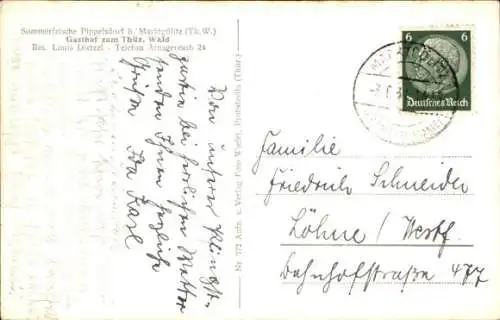 Sommerfrische Pippelsdorf b/ Marktgölitz (Th. W.)
Gasthof zum Thür. Wald
Bes. Louis Telefon Arnsgereuth 24
Von unserer Pfingst-
bei herrlichen Wetter
senden Ihnen herzliche
Grüßen Ida Karl
Nr. 772 Aufn. u. Verlag Foto Probstzella (Thür.)
6 6
Deutsches Reich
Familie
Friedrich Schneider
Löhne/ Westf.
Bahnhofstraße 477